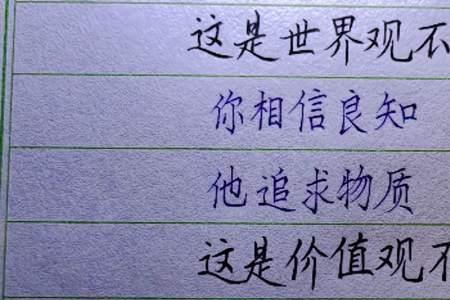 这是世界观不
你相信良知
他追求物质
这是价值观不